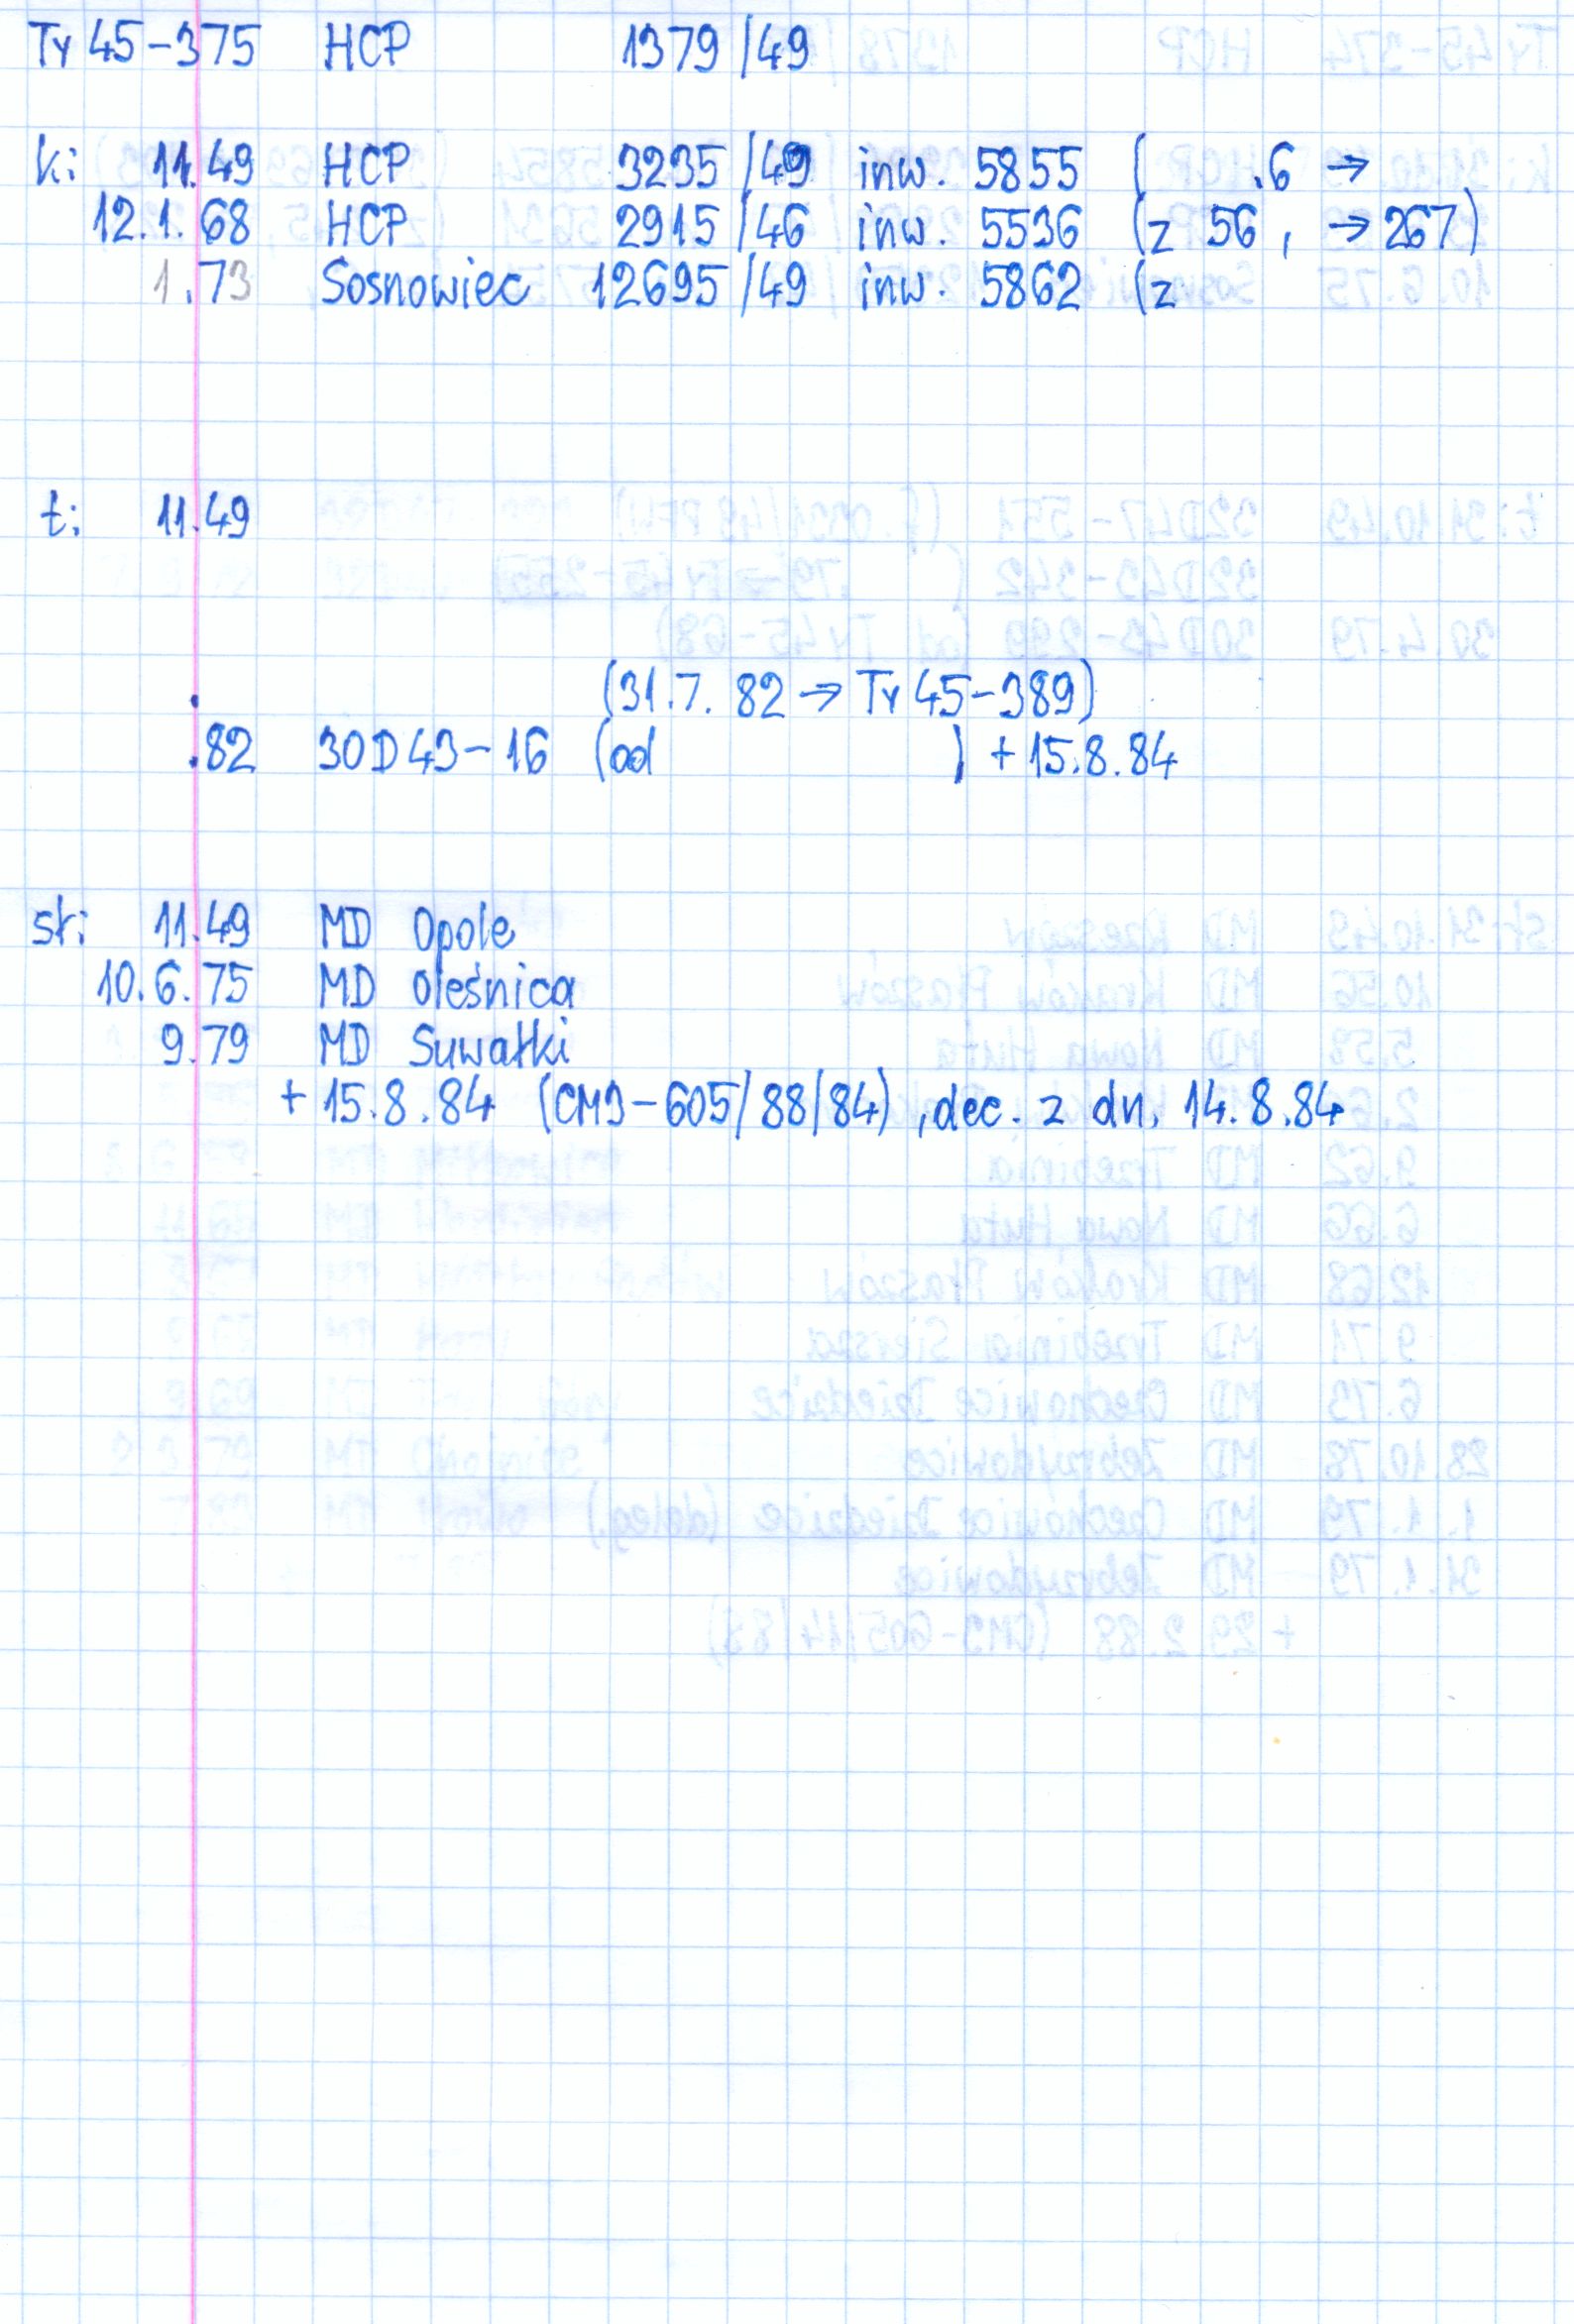 Ty 45-375 HCP 1379/49
ki: 11.49 HCP 3235/49 inw. 5855 ( .6 →
12.1.68 HCP 2915/46 inw. 5536 (z 56, → 267)
1.73 Sosnowiec 12695/49 inw. 5862 (z
t: 11.49
. (31.7.82 → Ty 45-389)
.82 30D43-16 (od ) + 15.8.84
st: 11.49 MD Opole
10.6.75 MD Oleśnica
9.79 MD Suwałki
+ 15.8.84 (CM3-605/88/84), dec. z dn. 14.8.84